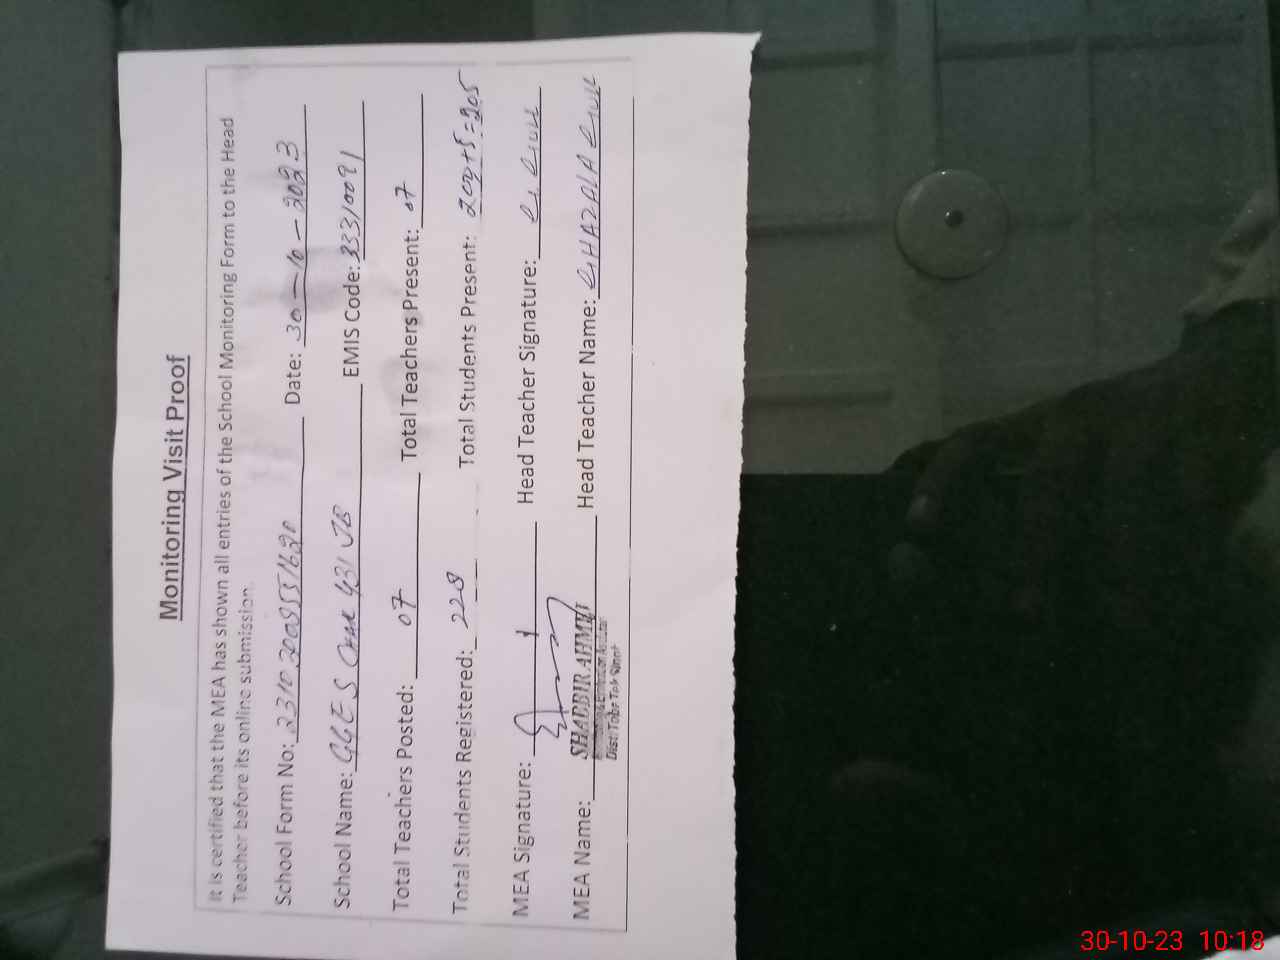 Monitoring Visit Proof
It is certified that the MEA has shown all entries of the School Monitoring Form to the Head
Teacher before its online submission.
School Form No: Date: 30-10-2023
School Name: GGES 431 JB EMIS Code: 33310091
Total Teachers Posted: 07 Total Teachers Present: 07
Total Students Registered: 228 Total Students Present: 200+5=205
MEA Signature: Head Teacher Signature: G. Gull
MEA Name: SHABBIR AHMED Head Teacher Name: GHAZALA GULL
Distt: Toba Tek Singh
30-10-23 10:18